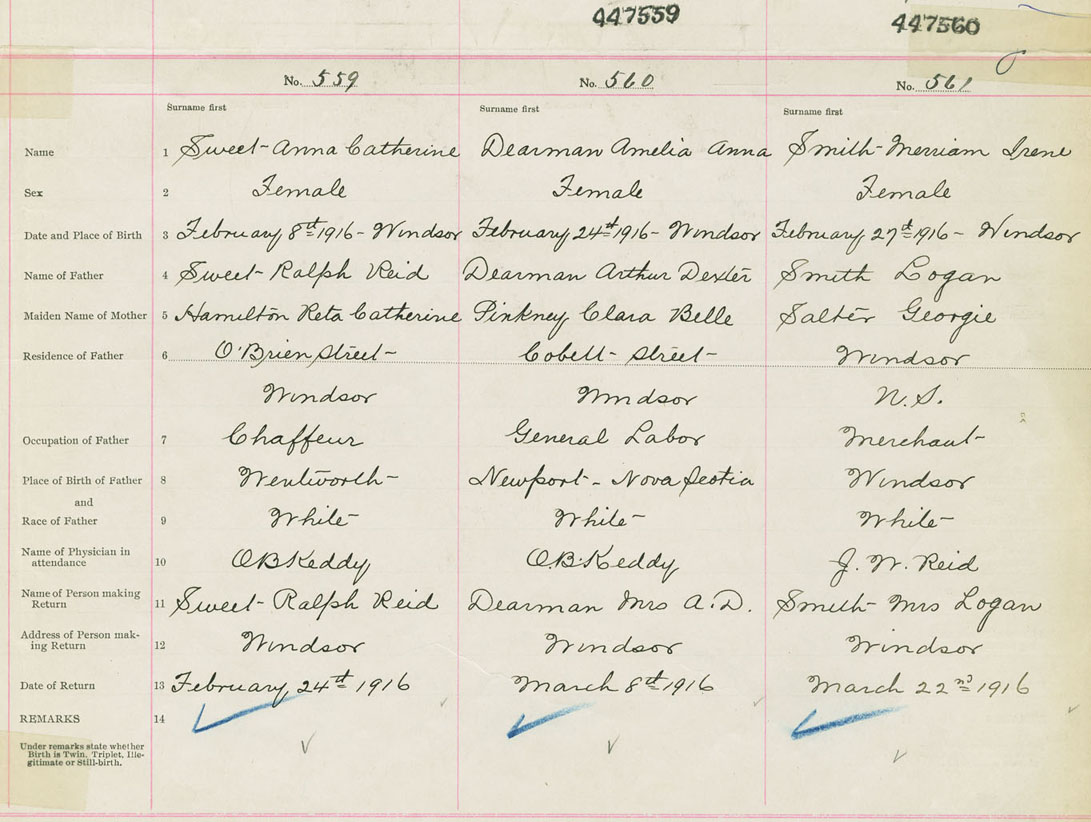 447559 447560
No. 559 No. 560 No. 561
Surname first Surname first Surname first
Name 1 Sweet - Anna Catherine Dearman Amelia Anna Smith - Merriam Irene
Sex 2 Female Female Female
Date and Place of Birth 3 February 8th 1916 - Windsor February 24th 1916 - Windsor February 27th 1916 - Windsor
Name of Father 4 Sweet - Ralph Reid Dearman Arthur Dexter Smith Logan
Maiden Name of Mother 5 Hamilton Reta Catherine Pinkney Clara Belle Salter Georgie
Residence of Father 6 O'Brien Street - Cobett - Street - Windsor
Windsor Windsor N.S.
Occupation of Father 7 Chaffeur General Labor Merchant -
Place of Birth of Father 8 Wentworth - Newport - Nova Scotia Windsor
and
Race of Father 9 White - White - White -
Name of Physician in
attendance 10 O B Keddy O.B. Keddy J. W. Reid
Name of Person making
Return 11 Sweet - Ralph Reid Dearman Mrs A. D. Smith - Mrs Logan
Address of Person mak-
ing Return 12 Windsor Windsor Windsor
Date of Return 13 February 24th 1916 March 8th 1916 March 22nd 1916
REMARKS 14
Under remarks state whether
Birth is Twin, Triplet, Ille-
gitimate or Still-birth.